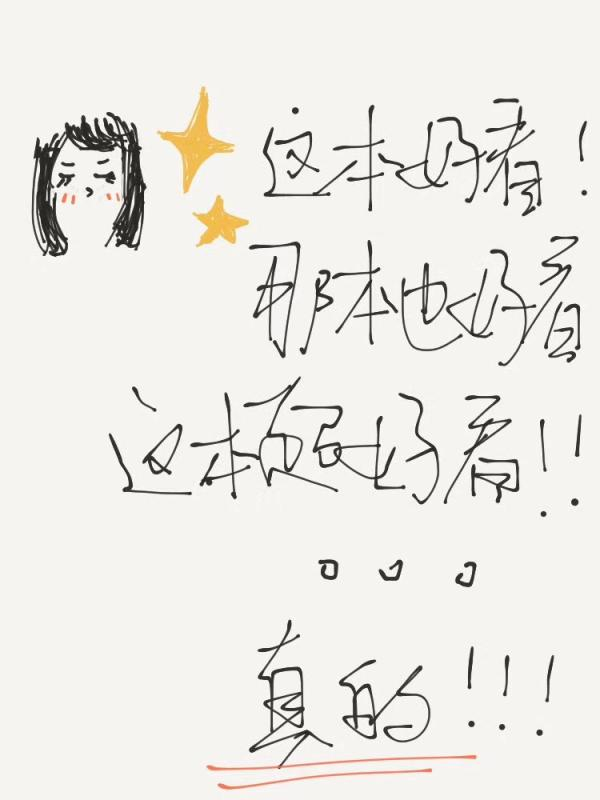 这本好看!
那本也好看
这本更好看!!
。。。
真的!!!